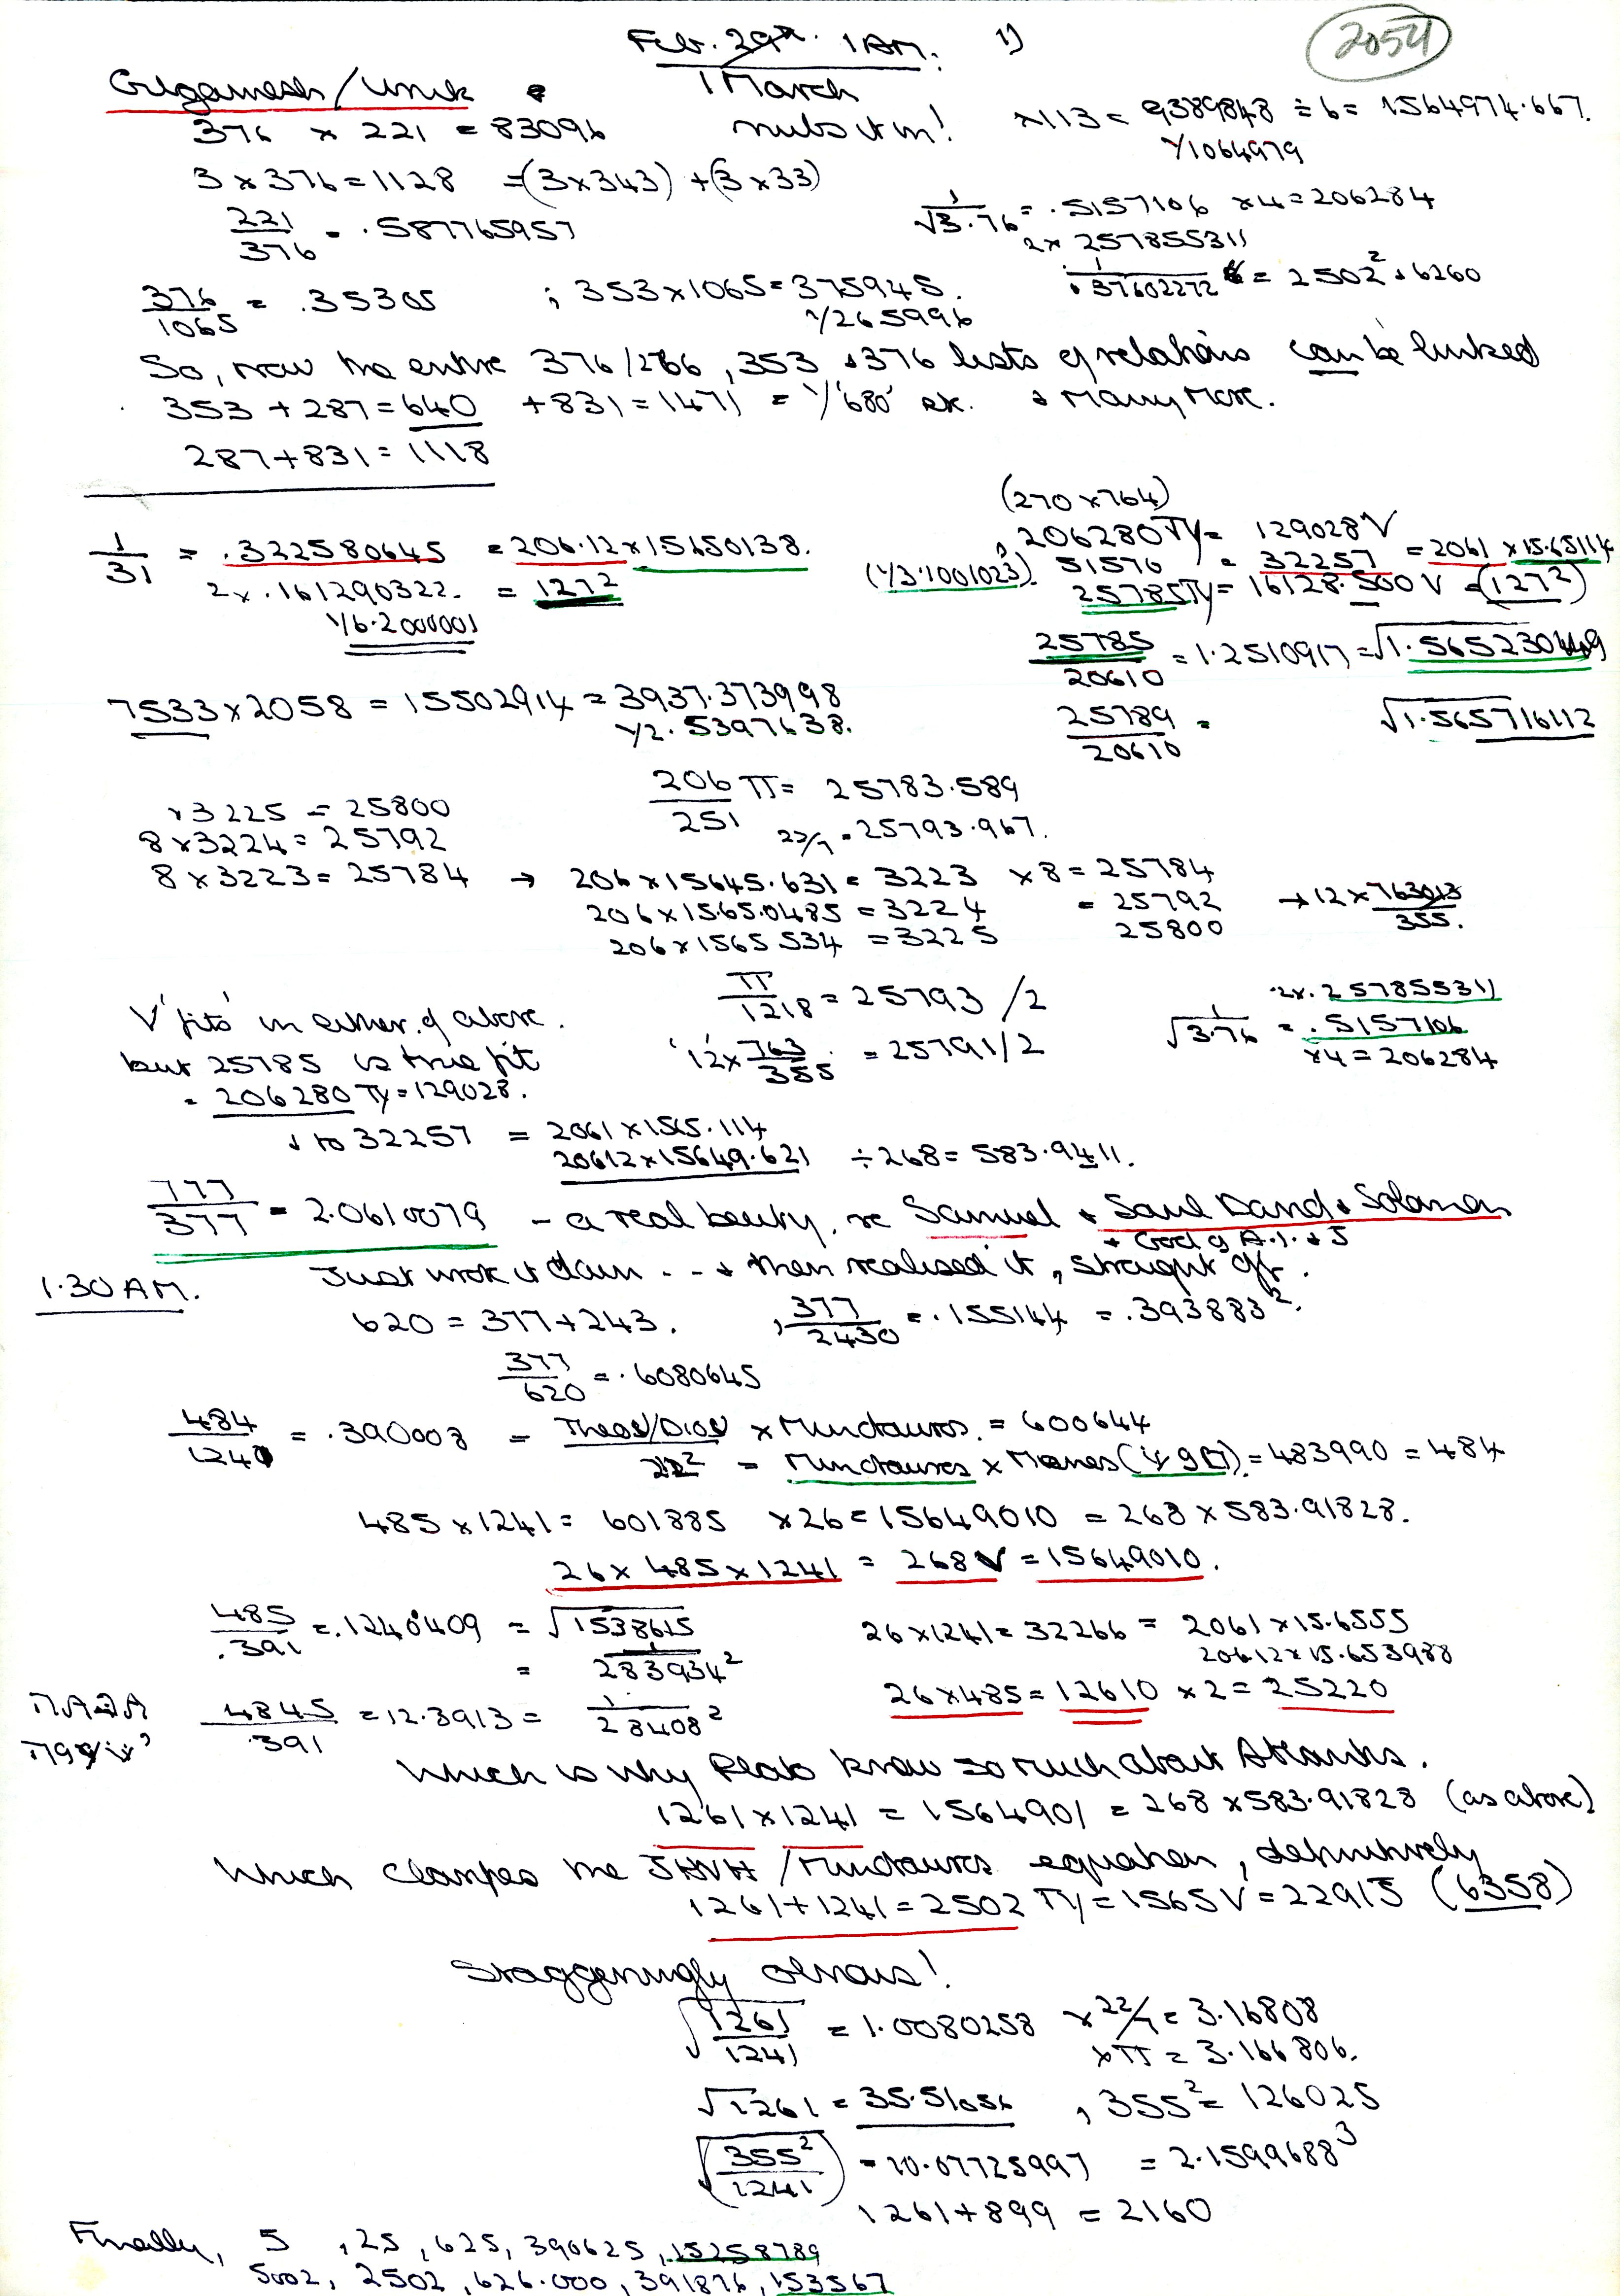 Feb. 29th. 1 AM. 1)
2054
1 March
Gilgamesh / Uruk
376 × 221 = 83096
×113 = 9389848 ÷ 6 = 1564974.667.
1/1064979
3 × 376 = 1128 = (3×343) + (3×33)
221/376 = .587765957
1/√3.76 = .5157106 ×4 = 206284
2× 257855311
1/.37602272 = 2502² , 6260
376/1065 = .35305 ; 353 × 1065 = 375945.
1/265996
So, now the entire 376/266, 353 & 376 lists of relations can be linked
353 + 287 = 640 + 831 = 1471 = 1/'680' etc. & Many More.
287 + 831 = 1118
(270 × 764)
1/31 = .322580645 = 206.12 × 15650138.
, 206280 TY = 129028 V
2×.161290322. = 127²
(1/3.1001023) 51570 = 32257 = 2061 × 15.65114
1/6.2000001
25785 TY = 16128.500 V = (127²)
25785/20610 = 1.2510917 = √1.565230449
7533 × 2058 = 15502914 = 3937.373998
1/2.5397638.
25789/20610 = √1.565716112
206/251 π = 25783.589
22/7 = 25793.967.
×3225 = 25800
8×3224 = 25792
8×3223 = 25784 → 206×15645.631 = 3223 ×8 = 25784
206×1565.0485 = 3224 = 25792 → 12 × 763013/355.
206×1565534 = 3225 25800
π/1218 = 25793 /2
'12'× 763/355 = 25791/2
2×.257855311
1/√3.76 = .5157106
×4 = 206284
V 'fits' in either of above.
but 25785 is true fit
= 206280 TY = 129028.
& to 32257 = 2061 × 1565.114
20612×15649.621 ÷268 = 583.9411.
777/377 = 2.0610079 - a real beauty, re Samuel & Saul David & Solomon
+ God of A.I. & J
1.30 AM.
Just wrote it down . . & then realised it, straight off.
620 = 377+243. , 377/2430 = .155144 = .393883².
377/620 = .6080645
484/1240 = .390003 - Theos/Dios × Minotauros. = 600644
22² = Minotauros × = 483990 = 484
485 × 1241 = 601885 ×26 = 15649010 = 268 × 583.91828.
26 × 485 × 1241 = 268 V = 15649010.
485/.391 = .1240409 = √1538615
= 1/283934²
26×1241 = 32266 = 2061 × 15.6555
20612×15.653988
26×485 = 12610 ×2 = 25220
4845/.391 = 12.3913 = 1/28408²
Which is why Plato knew so much about Atlantis.
1261 × 1241 = 1564901 = 268 × 583.91828 (as above)
Which clamps the JHVH / Minotauros equation, definitively
1261 + 1241 = 2502 TY = 1565 V = 22915 (6358)
Staggeringly obvious!
√1261/1241 = 1.0080258 × 22/7 = 3.16808
×π = 3.166806.
√1261 = 35.51056 , 355² = 126025
√(355²/1241) = 10.07725997 = 2.1599688³
1261 + 899 = 2160
Finally, 5 , 25 , 625, 390625, 15258789
5002, 2502, 626.000, 391876, 153567